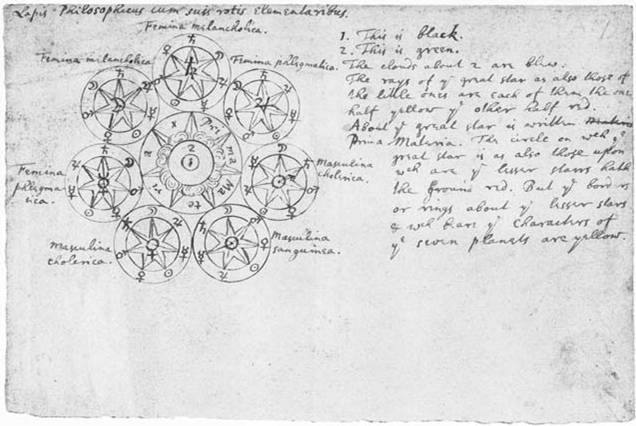 Lapis Philosophicus cum suis rotis Elementaribus.
Femina melancholica.
Femina melancholica
Femina phlegmatica.
Femina
phlegma-
tica.
Masculina
cholerica.
masculina
cholerica.
Masculina
sanguinea.
Prima Materia
1
2
1. This is black.
2. This is green.
The clouds about 2 are blew.
The rays of ye great star as also those of
the little ones are each of them the one
half yellow ye other half red.
About ye great star is written
Prima Materia. The circle on wch ye
great star is as also those upon
wch are ye lesser starrs hath
the ground red. But ye borders
or rings about ye lesser stars
& wch beare ye characters of
ye seven planets are yellow.